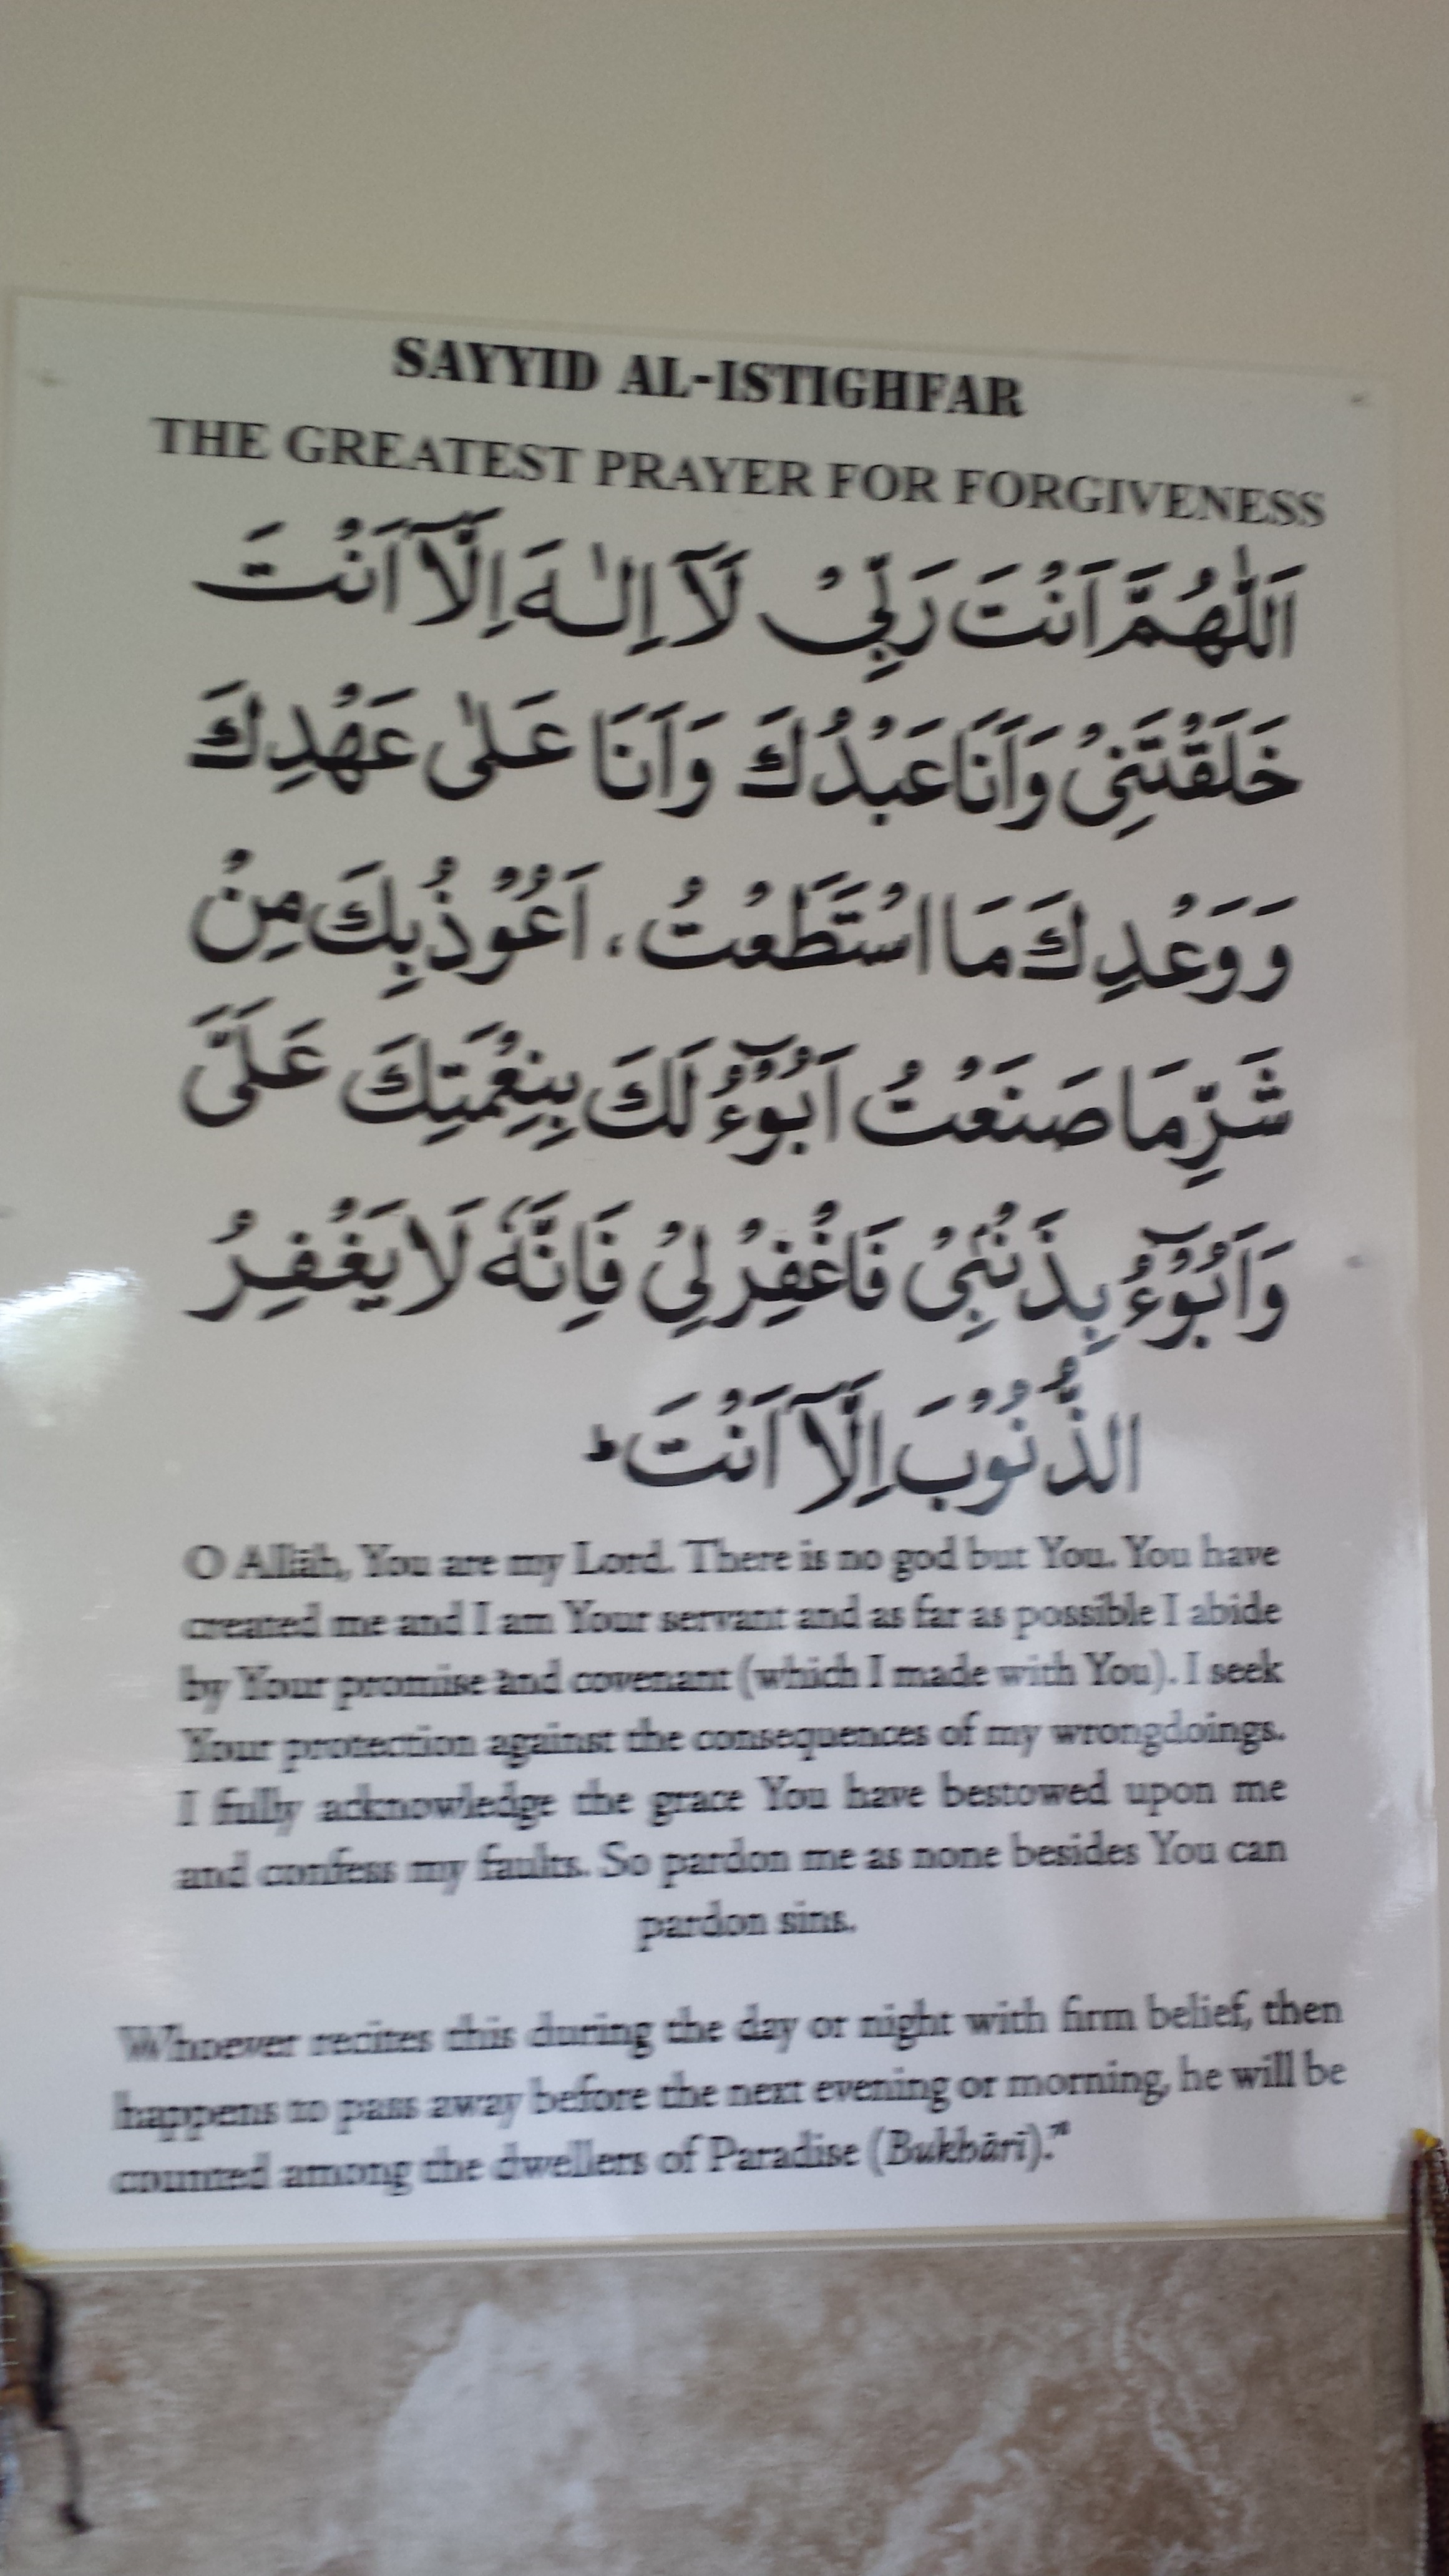 SAYYID AL-ISTIGHFAR
THE GREATEST PRAYER FOR FORGIVENESS
اَللّٰهُمَّ اَنْتَ رَبِّيْ لَآ اِلٰهَ اِلَّآ اَنْتَ
خَلَقْتَنِيْ وَاَنَا عَبْدُكَ وَاَنَا عَلٰى عَهْدِكَ
وَوَعْدِكَ مَا اسْتَطَعْتُ، اَعُوْذُ بِكَ مِنْ
شَرِّ مَا صَنَعْتُ اَبُوْٓءُ لَكَ بِنِعْمَتِكَ عَلَيَّ
وَاَبُوْٓءُ بِذَنْۢبِيْ فَاغْفِرْ لِيْ فَاِنَّهٗ لَا يَغْفِرُ
الذُّنُوْبَ اِلَّآ اَنْتَ ؕ
O Allāh, You are my Lord. There is no god but You. You have
created me and I am Your servant and as far as possible I abide
by Your promise and covenant (which I made with You). I seek
Your protection against the consequences of my wrongdoings.
I fully acknowledge the grace You have bestowed upon me
and confess my faults. So pardon me as none besides You can
pardon sins.
Whoever recites this during the day or night with firm belief, then
happens to pass away before the next evening or morning, he will be
counted among the dwellers of Paradise (Bukhāri)."